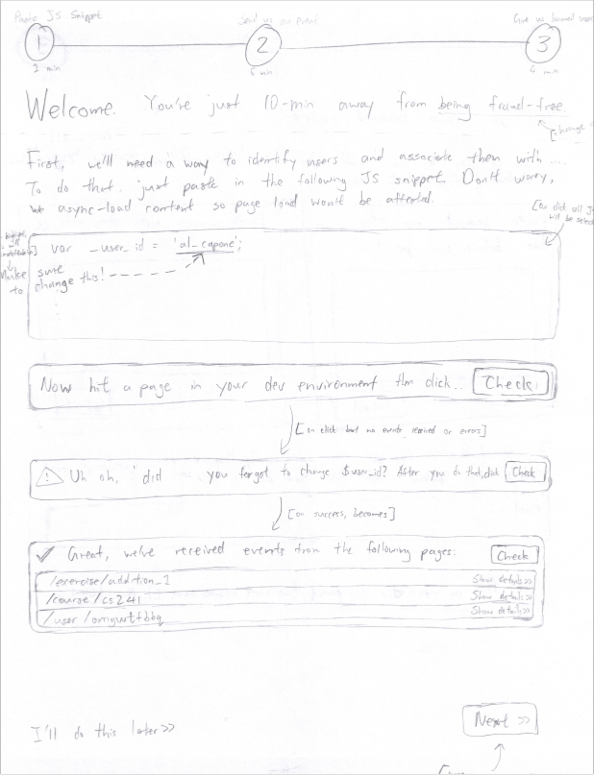 Paste JS Snippet
Send us an event
Give us banned users
1
2
3
2 min
4 min
Welcome. You're just 10-min away from being fraud-free.
[change
First, we'll need a way to identify users and associate them with ...
To do that, just paste in the following JS snippet. Don't worry,
we async-load content so page load won't be affected.
will be select
var _user_id = 'al_capone';
Make sure
to change this!
Now hit a page in your dev environment then click..
Check
[on click but no events received or errors]
Uh oh, did you forget to change $user_id? After you do that, click
Check
[on success, becomes]
Great, we've received events from the following pages:
Check
/exercise/addition_1
Show details >>
/course/cs241
Show details >>
/user/omgwtfbbq
Show details >>
I'll do this later >>
Next >>